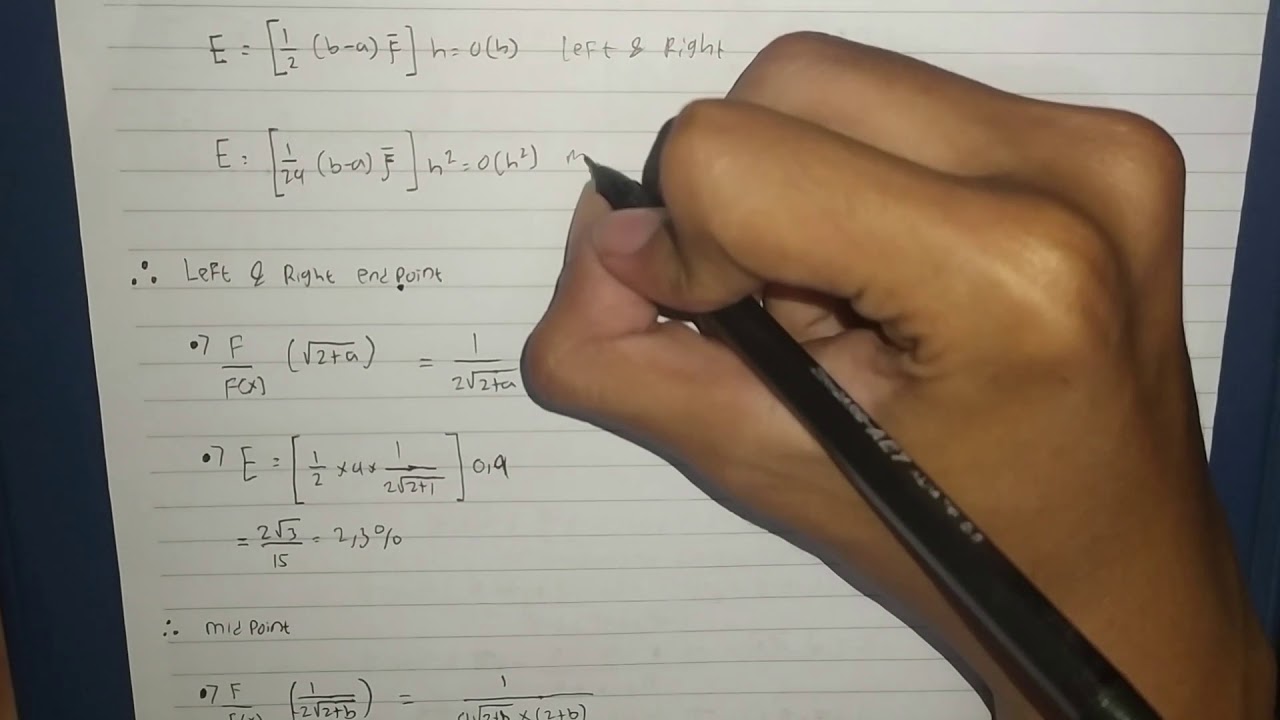 E = [1/2 (b-a) F̄] h = O(h) Left & Right
E = [1/24 (b-a) F̄] h² = O(h²) m
∴ Left & Right end point
•7 F/F(x) (√2+a) = 1/2√2+a
•7 E = [1/2 × 4 × 1/2√2+1] 0,4
= 2√3/15 = 2,3%
∴ midpoint
•7 F/F(x) (1/2√2+b) = 1/4√2+b × (2+b)